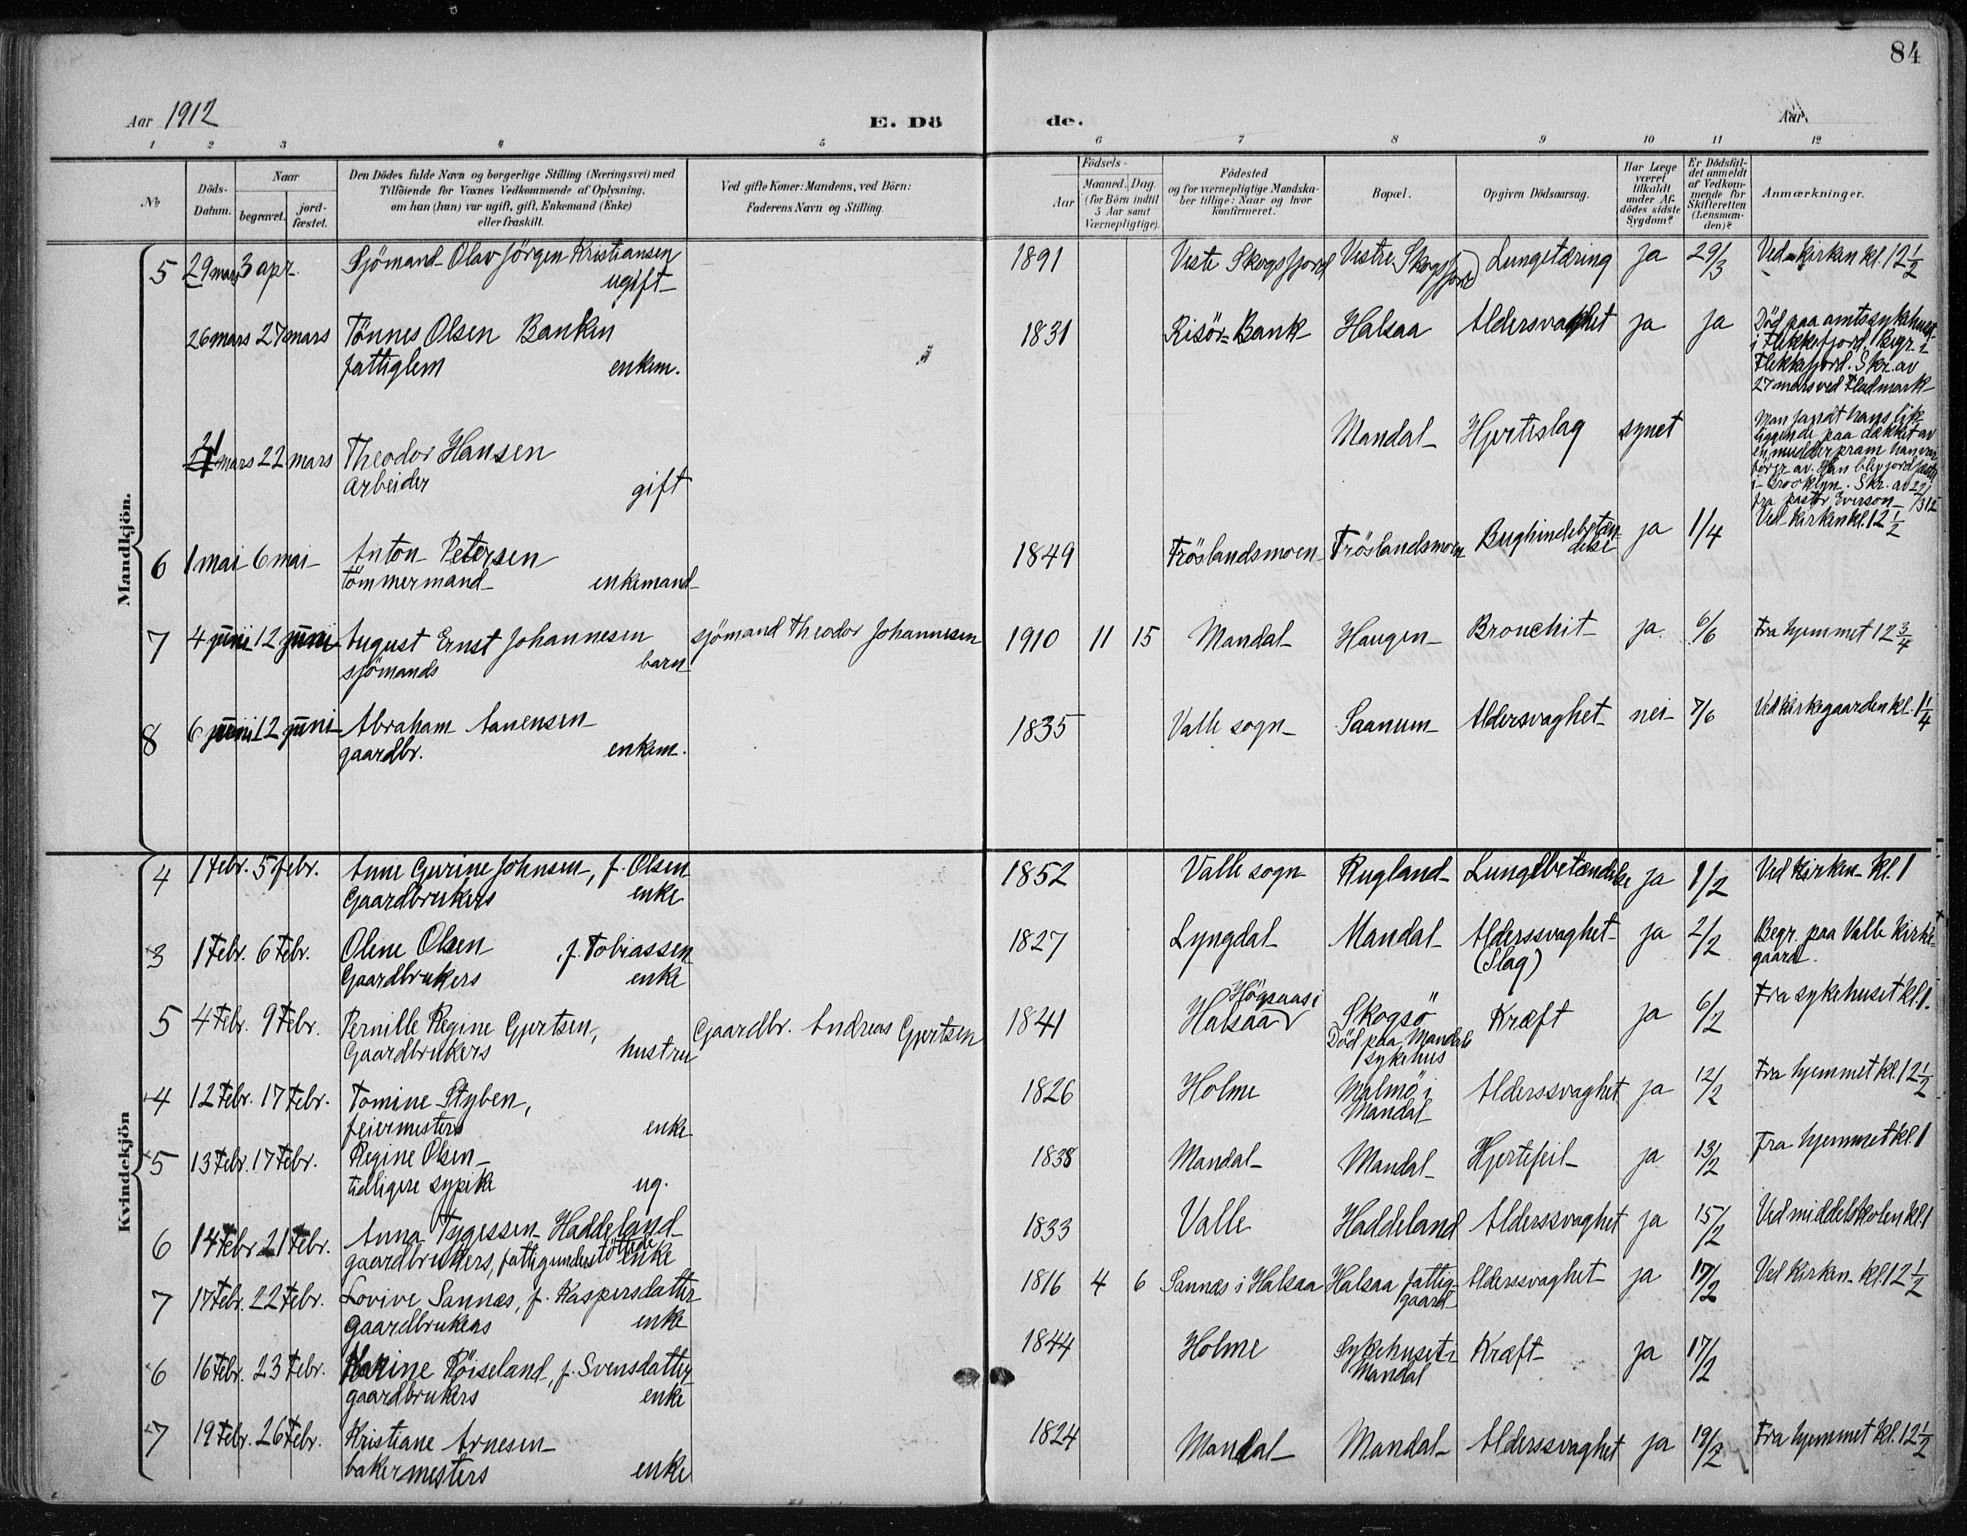 84
Aar 1912
E. Dö
de.
Aar
1 2 3 4 5 6 7 8 9 10 11 12
№
Döds-
Datum.
Naar
begravet.
jord-
fæstet.
Den Dödes fulde Navn og borgerlige Stilling (Næringsvei) med
Tilföiende for Voxnes Vedkommende af Oplysning,
om han (hun) var ugift, gift, Enkemand (Enke)
eller fraskilt.
Ved gifte Koner: Mandens, ved Börn:
Faderens Navn og Stilling.
Födsels-
Aar
Maaned. Dag
(for Börn indtil
5 Aar samt
Værnepligtige).
Födested
og for værnepligtige Mandska-
ber tillige: Naar og hvor
konfirmeret.
Bopæl.
Opgiven Dödsaarsag.
Har Læge
været
tilkaldt
under Af-
dödes sidste
Sygdom?
Er Dödsfal-
det anmeldt
af Vedkom-
mende for
Skifteretten
(Lensman-
den)?
Anmærkninger.
Mandkjön.
5 29 mars 3 apr. Sjömand Olav Jörgen Kristiansen 1891 Veste Skogsfjord Vestre Skogsfjord Lungetæring ja 29/3 Ved kirken kl. 12 1/2
ugift
26 mars 27 mars Tönnes Olsen Banken 1831 Risör-Bank Halsaa Aldersvaghet ja ja Död paa amtssykehuset
fattiglem enkem.
i Flekkefjord. Begr. i
Flekkefjord. Skr. av
27 mars ved Fladmark
21 mars 22 mars Theodor Hansen Mandal Hjerteslag synet Man fandt hans lik
arbeider gift
liggende paa dækket av
en mudderpram han var
av. Han blev jordfæstet
i Brooklyn. Skr. av 22/3 12
fra pastor Everson
6 1 mai 6 mai Anton Petersen 1849 Fröslandsmoen Fröslandsmoen Bughindebetændelse ja 1/4 Ved kirken kl. 12 1/2
tömmermand enkemand
7 4 juni 12 juni August Ernst Johannesen sjömand Theodor Johannesen 1910 11 15 Mandal Haugen Bronchit ja 6/6 Fra hjemmet 12 3/4
sjömands barn
8 6 juni 12 juni Abraham Aanensen 1835 Valle sogn Saanum Aldersvaghet nei 7/6 Ved kirkegaarden kl. 1 1/4
gaardbr. enkem.
Kvindekjön
4 1 febr. 5 febr. Anne Gurine Johnsen, f. Olsen 1852 Valle sogn Rugland Lungebetændelse ja 1/2 Ved kirken kl. 1
Gaardbrukers enke
3 1 Febr. 6 Febr. Oline Olsen f. Tobiassen 1827 Lyngdal Mandal Alderssvaghet ja 2/2 Begr. paa Valle kirke-
Gaardbrukers enke (Slag) gaard.
5 4 Febr. 9 Febr. Pernille Regine Gjertsen, Gaardbr. Andreas Gjertsen 1841 Högsaas i Halsaa Skogsö Kræft ja 6/2 Fra sykehuset kl. 1.
Gaardbrukers hustru Död paa Mandals
sykehus
4 12 Febr. 17 Febr. Tomine Styben, 1826 Holme Malmö i Alderssvaghet ja 12/2 Fra hjemmet kl. 12 1/2
feiermesters enke Mandal
5 13 Febr. 17 Febr. Regine Olsen 1838 Mandal Mandal Hjertefeil ja 13/2 Fra hjemmet kl. 1
tidligere sypike ug.
6 14 Febr 21 Febr. Anna Tygessen Haddeland 1833 Valle Haddeland Alderssvaghet ja 15/2 Ved middelskolen kl. 1
gaardbrukers, fattigunderstöttede enke
7 17 Febr. 22 Febr. Lovive Sannæs, f. Kaspersdatter 1816 4 6 Sannæs i Halsaa Halsaa fattig- Alderssvaghet ja 17/2 Ved kirken kl. 12 1/2
Gaardbrukers enke gaard
6 16 Febr. 23 Febr. Karine Röiseland, f. Svensdatter 1844 Holme Sykehuset i Kræft ja 17/2
gaardbrukers enke Mandal
7 19 Febr. 26 Febr. Kristiane Arnesen 1824 Mandal Mandal Alderssvaghet ja 19/2 Fra hjemmet kl. 12 1/2
bakermesters enke